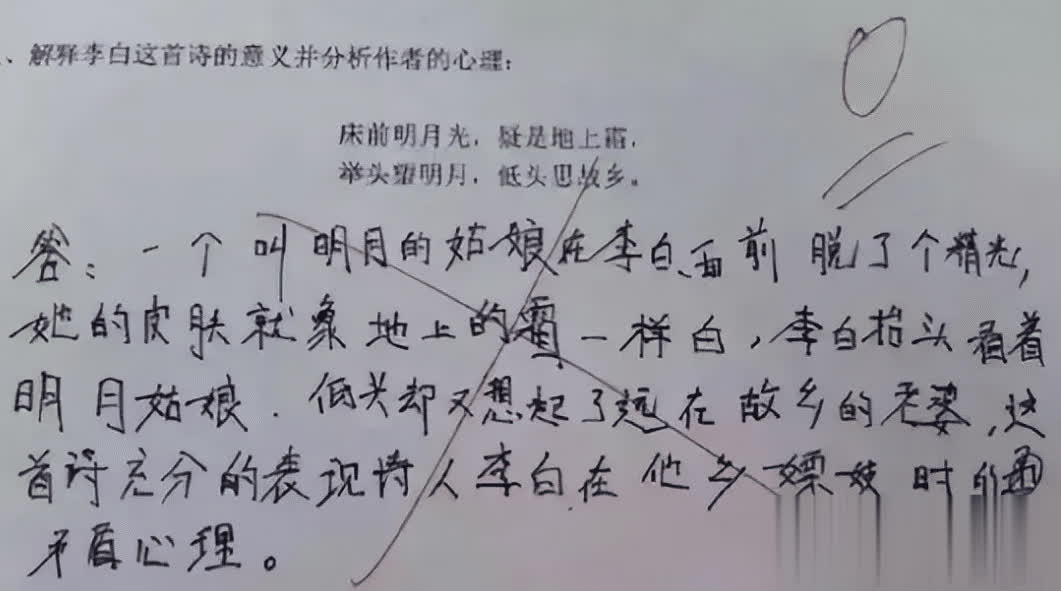 、解释李白这首诗的意义并分析作者的心理：
床前明月光，疑是地上霜，
举头望明月，低头思故乡。
答：一个叫明月的姑娘在李白面前脱了个精光，
她的皮肤就象地上的霜一样白，李白抬头看着
明月姑娘．低头却又想起了远在故乡的老婆，这
首诗充分的表现诗人李白在他乡嫖妓时的
矛盾心理。
0